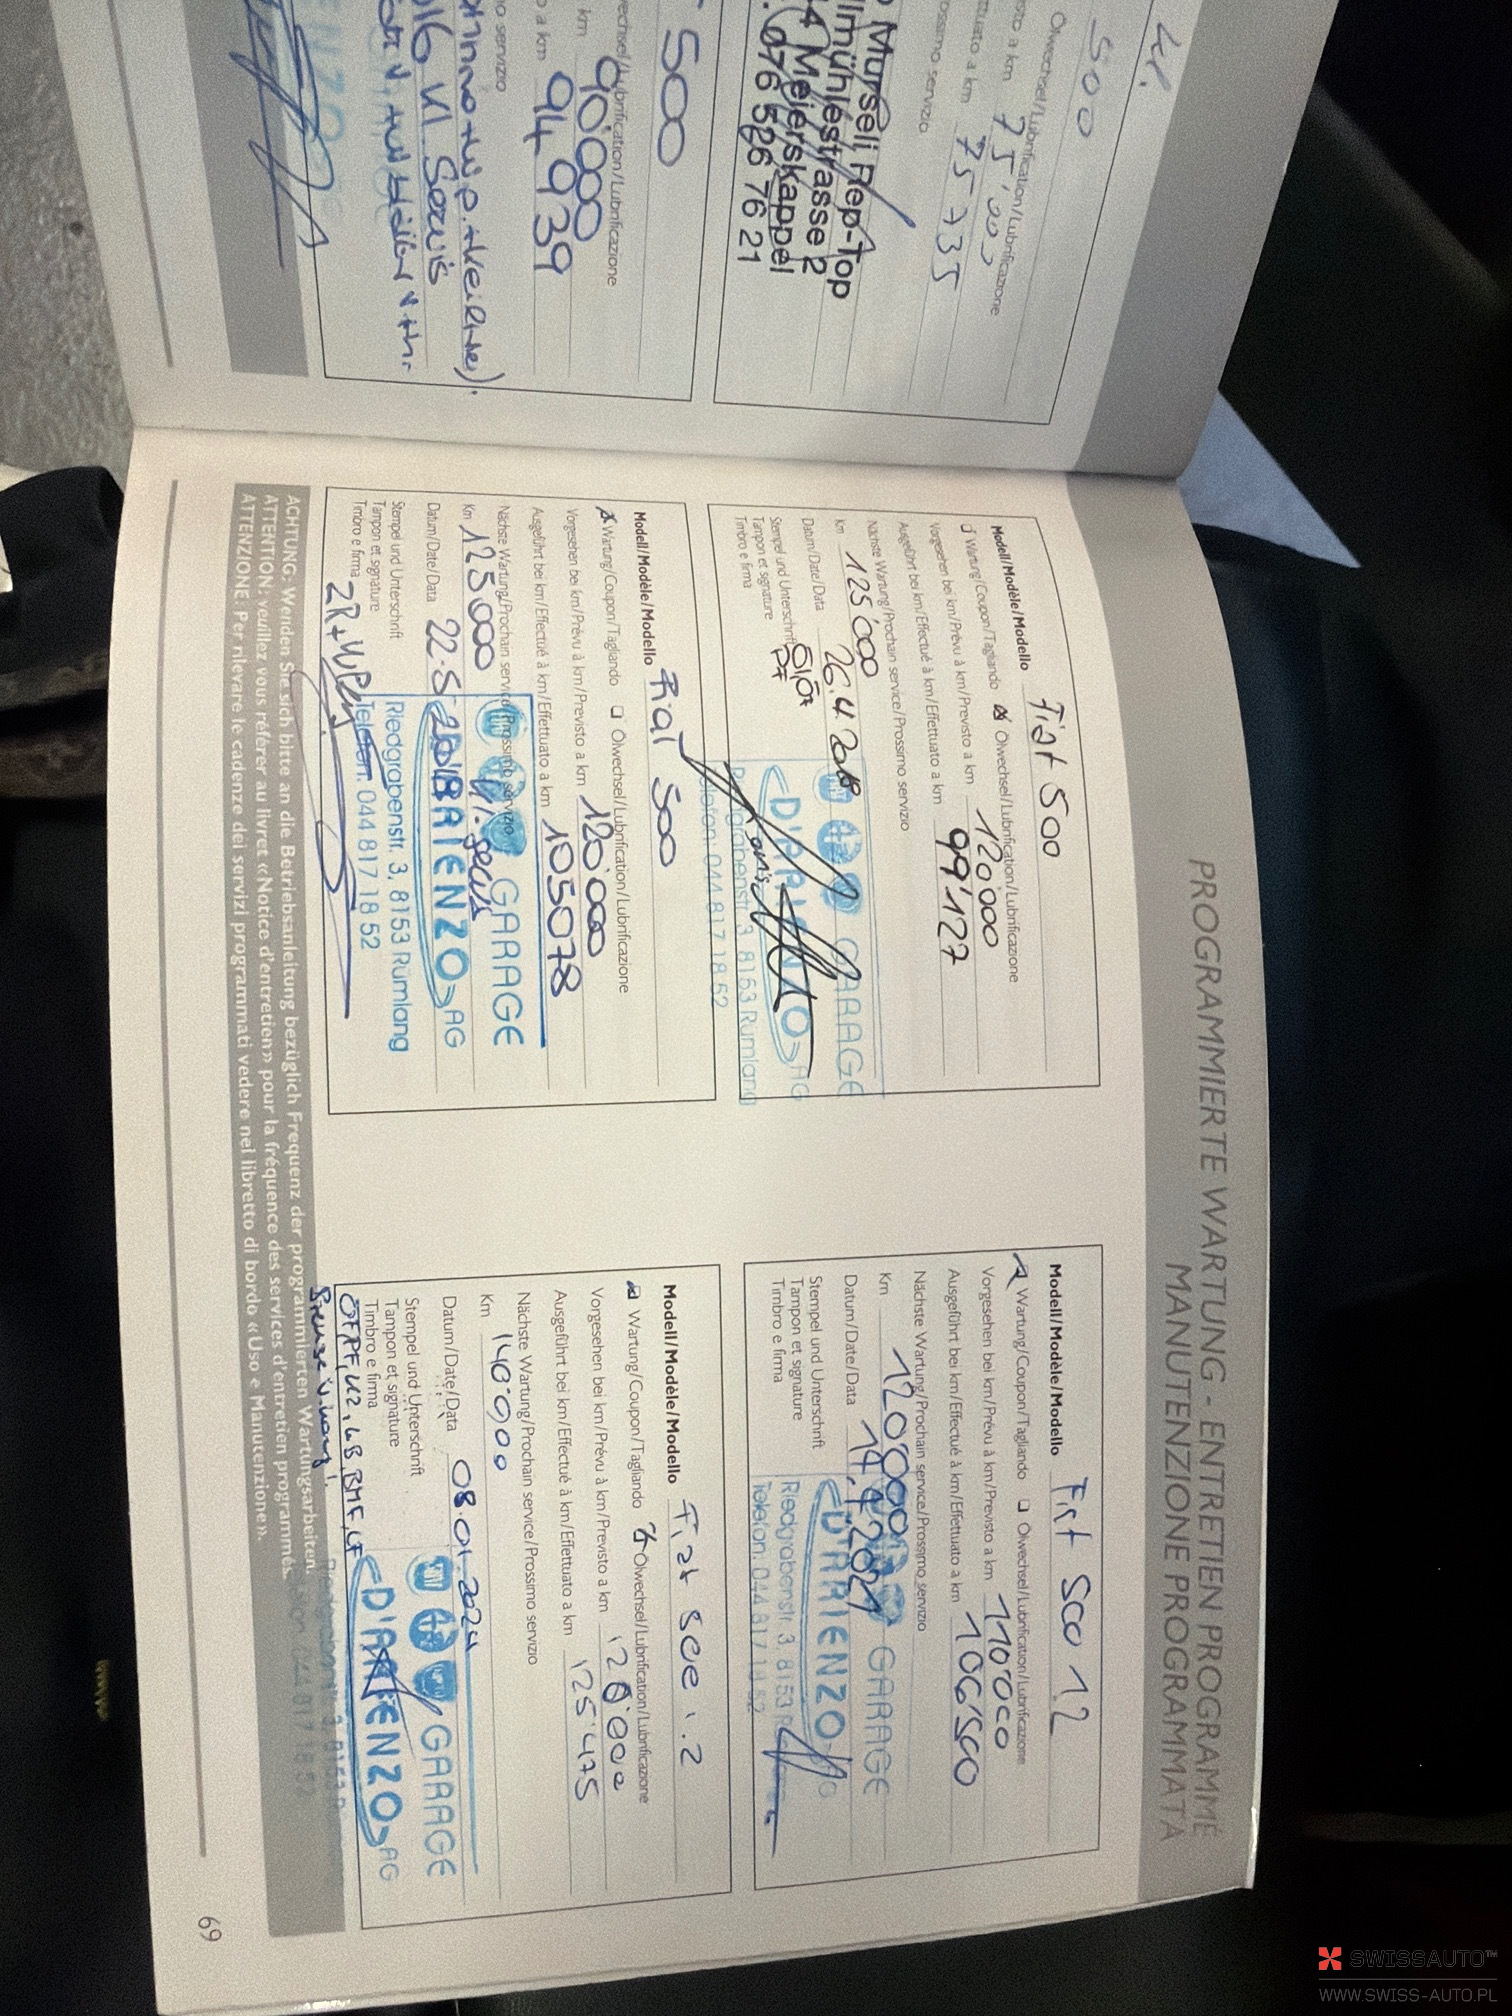 41.
500
Ölwechsel/Lubrification/Lubrificazione
sto a km 75'000
ttuato a km 75 735
rossimo servizio
Murseli Rep-Top
lmühlestrasse 2
4 Meierskappel
. 076 526 76 21
500
echsel/Lubrification/Lubrificazione
km 90'000
o a km 94 939
no servizio
PROGRAMMIERTE WARTUNG - ENTRETIEN PROGRAMMÉ
MANUTENZIONE PROGRAMMATA
Modell/Modèle/Modello Fiat 500
Wartung/Coupon/Tagliando Ölwechsel/Lubrification/Lubrificazione
Vorgesehen bei km/Prévu à km/Previsto a km 120'000
Ausgeführt bei km/Effectué à km/Effettuato a km 99'127
Nächste Wartung/Prochain service/Prossimo servizio
Km 125'000
Datum/Date/Data 26.4.2018
Stempel und Unterschrift
Tampon et signature
Timbro e firma
GARAGE
D'ARIENZO AG
Riedgrabenstr. 3, 8153 Rümlang
Telefon: 044 817 18 52
Modell/Modèle/Modello Fiat 500
Wartung/Coupon/Tagliando Ölwechsel/Lubrification/Lubrificazione
Vorgesehen bei km/Prévu à km/Previsto a km 120'000
Ausgeführt bei km/Effectué à km/Effettuato a km 105078
Nächste Wartung/Prochain service/Prossimo servizio
Km 125000
Datum/Date/Data 22.5.2018
Stempel und Unterschrift
Tampon et signature
Timbro e firma
GARAGE
D'ARIENZO AG
Riedgrabenstr. 3, 8153 Rümlang
Telefon: 044 817 18 52
Modell/Modèle/Modello Fiat 500 1.2
Wartung/Coupon/Tagliando Ölwechsel/Lubrification/Lubrificazione
Vorgesehen bei km/Prévu à km/Previsto a km 110'000
Ausgeführt bei km/Effectué à km/Effettuato a km 106'500
Nächste Wartung/Prochain service/Prossimo servizio
Km 120'000
Datum/Date/Data
Stempel und Unterschrift
Tampon et signature
Timbro e firma
GARAGE
D'ARIENZO AG
Riedgrabenstr. 3, 8153
Telefon: 044 817 18 52
Modell/Modèle/Modello Fiat 500 1.2
Wartung/Coupon/Tagliando Ölwechsel/Lubrification/Lubrificazione
Vorgesehen bei km/Prévu à km/Previsto a km 120'000
Ausgeführt bei km/Effectué à km/Effettuato a km 125'475
Nächste Wartung/Prochain service/Prossimo servizio
Km 140'000
Datum/Date/Data 08.01.2024
Stempel und Unterschrift
Tampon et signature
Timbro e firma
GARAGE
D'ARIENZO AG
ACHTUNG: Wenden Sie sich bitte an die Betriebsanleitung bezüglich Frequenz der programmierten Wartungsarbeiten.
ATTENTION: veuillez vous référer au livret «Notice d'entretien» pour la fréquence des services d'entretien programmés.
ATTENZIONE. Per rilevare le cadenze dei servizi programmati vedere nel libretto di bordo «Uso e Manutenzione».
69
SWISSAUTO™
WWW.SWISS-AUTO.PL